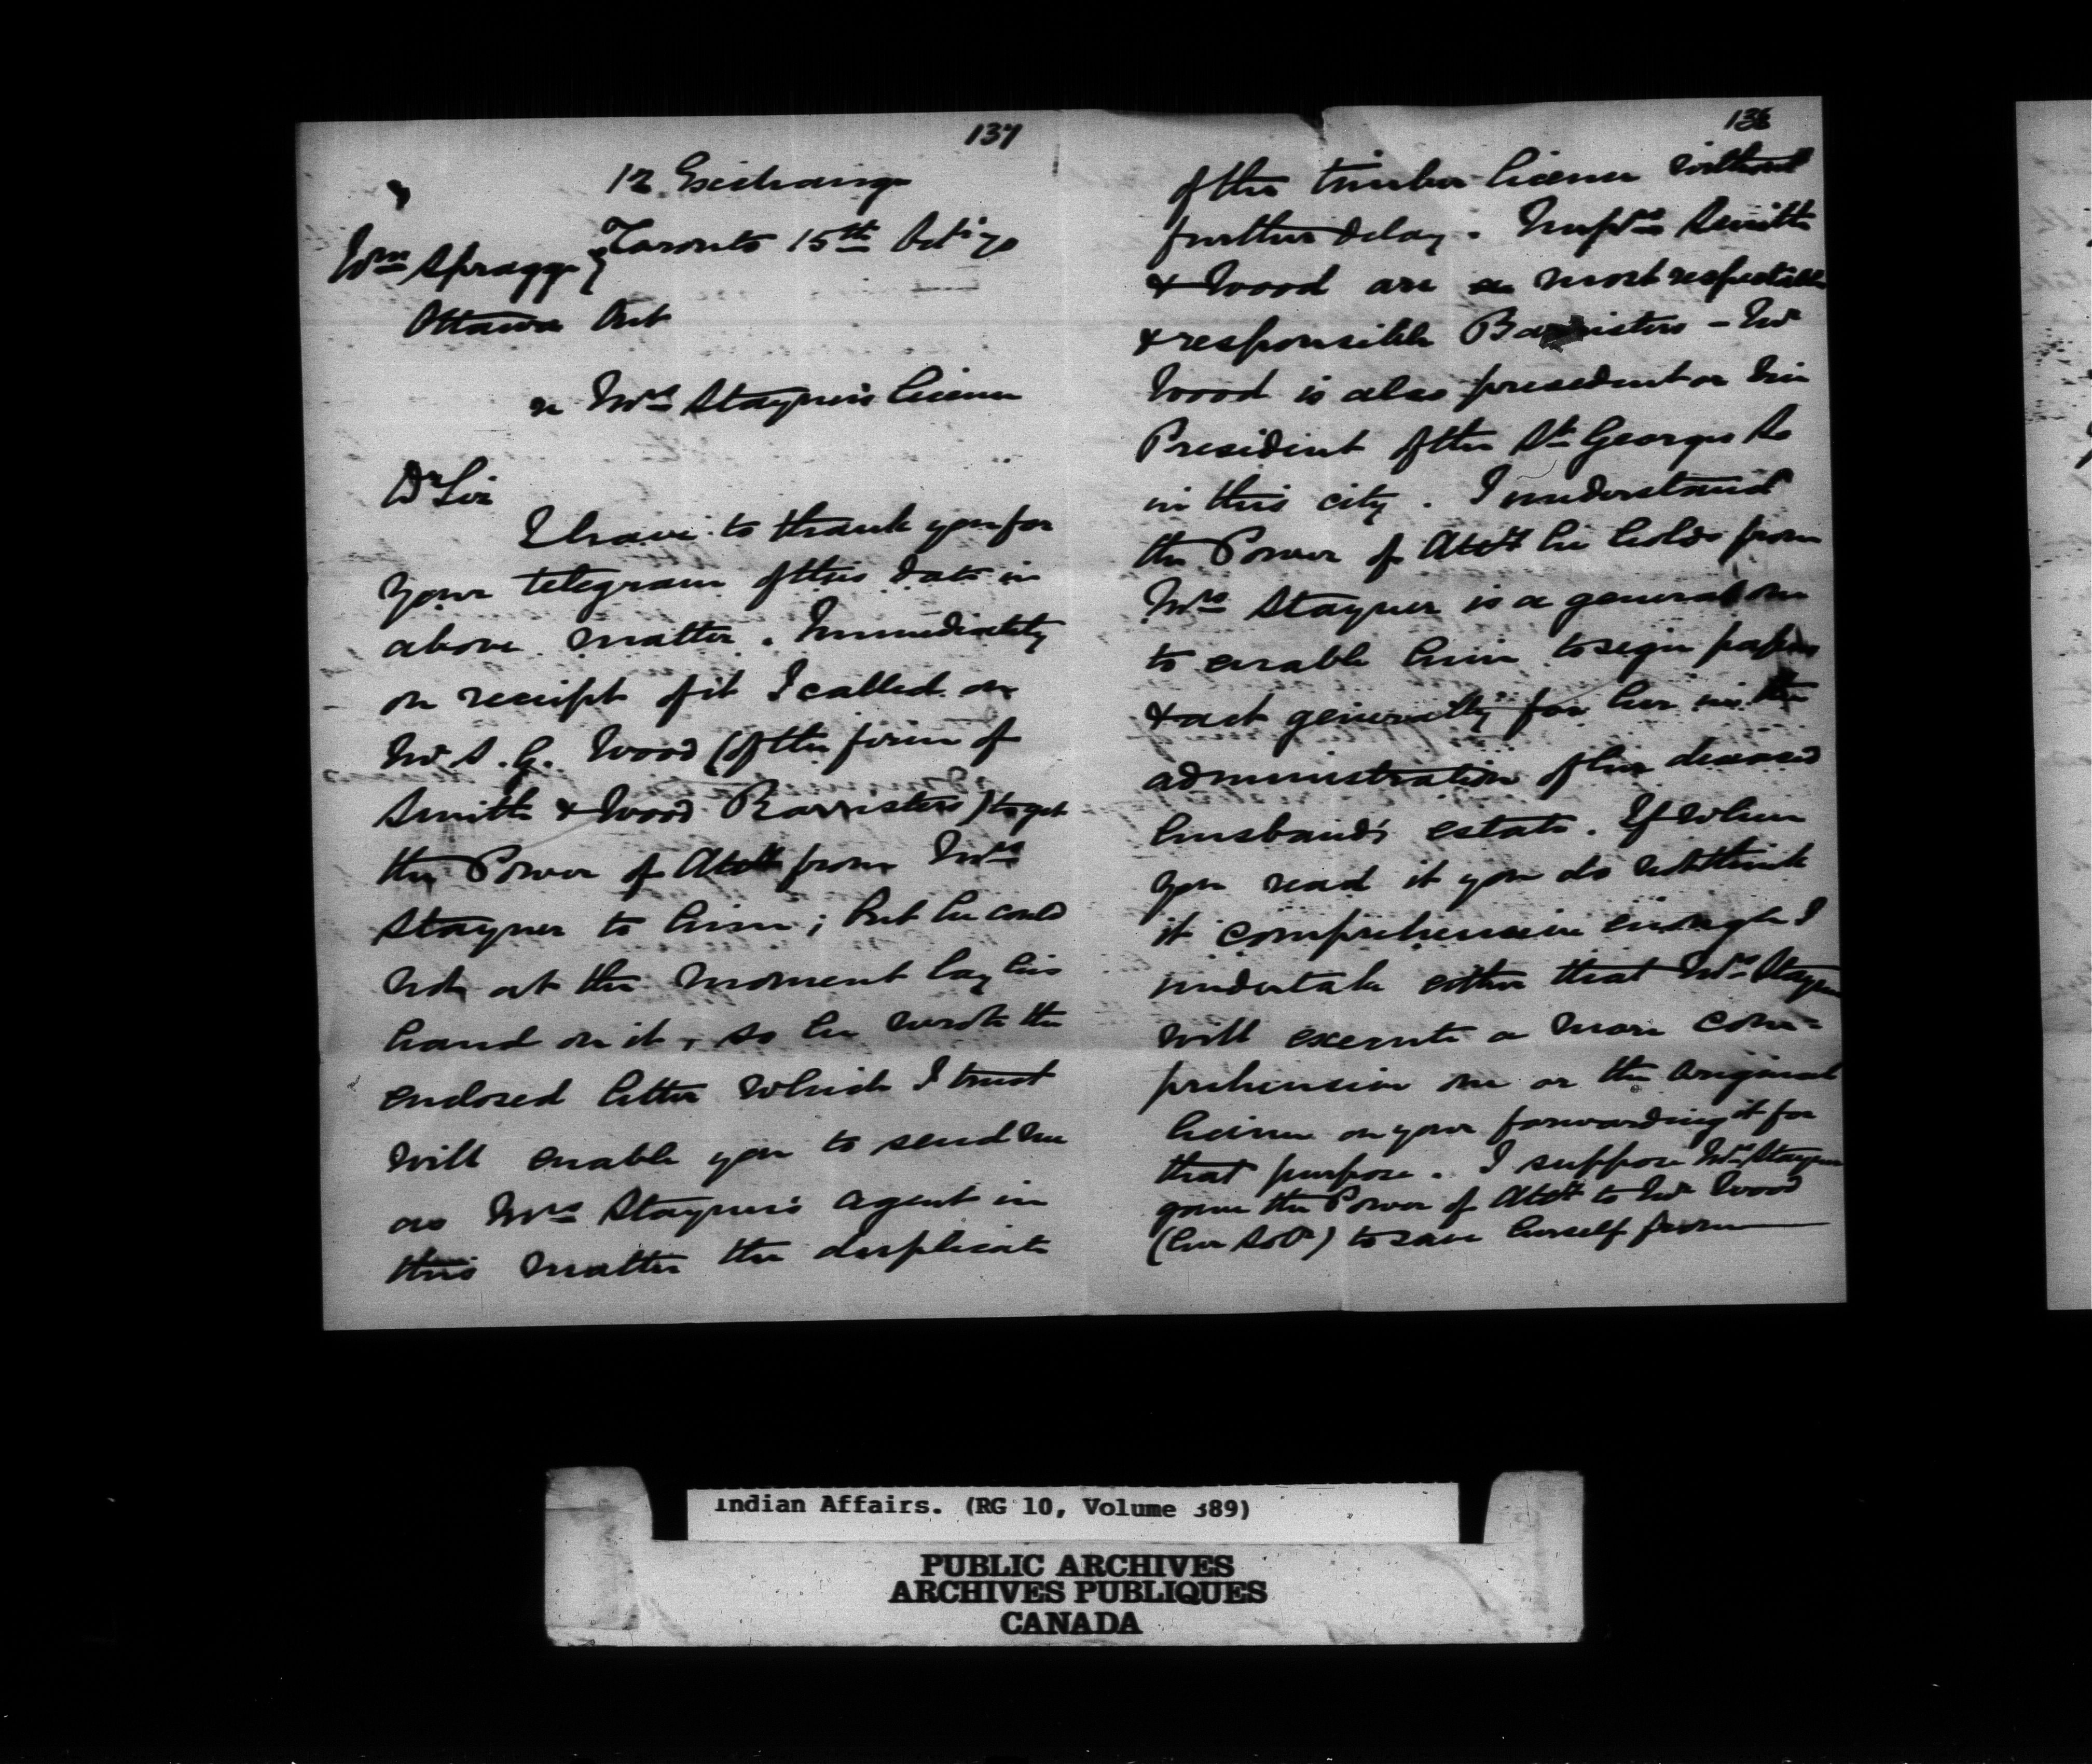 137
12 Exchange
Toronto 15th Oct. '70
Wm Spragge
Ottawa Ont
re Mrs Stayner's license
Dr Sir
I have to thank you for
your telegram of this date in
above matter. Immediately
on receipt of it I called on
Mr S. G. Wood (of the firm of
Smith & Wood Barristers) to get
the Power of Atty from Mrs
Stayner to him; but he could
not at the moment lay his
hand on it, so he wrote the
enclosed letter which I trust
will enable you to send me
as Mrs Stayner's agent in
this matter the duplicate
136
of the timber license without
further delay. Messrs Smith
& Wood are most respectable
& responsible Barristers - Mr
Wood is also president or Vice
President of the St Georges So
in this city. I understand
the Power of Atty he holds from
Mrs Stayner is a general one
to enable him to sign papers
& act generally for her in the
administration of her deceased
husband's estate. If when
you read it you do not think
it comprehensive enough I
undertake either that Mrs Stayner
will execute a more com=
prehensive one or the original
license on your forwarding it for
that purpose. I suppose Mrs Stayner
gave the Power of Atty to Mr Wood
(her Solr) to save herself from
Indian Affairs. (RG 10, Volume 389)
PUBLIC ARCHIVES
ARCHIVES PUBLIQUES
CANADA